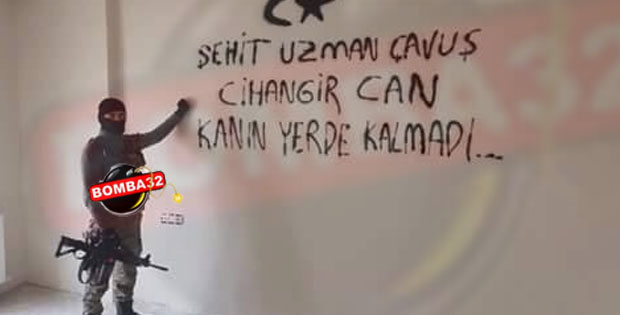 ŞEHİT UZMAN ÇAVUŞ
CİHANGİR CAN
KANIN YERDE KALMADI...
BOMBA32
BOMBA32